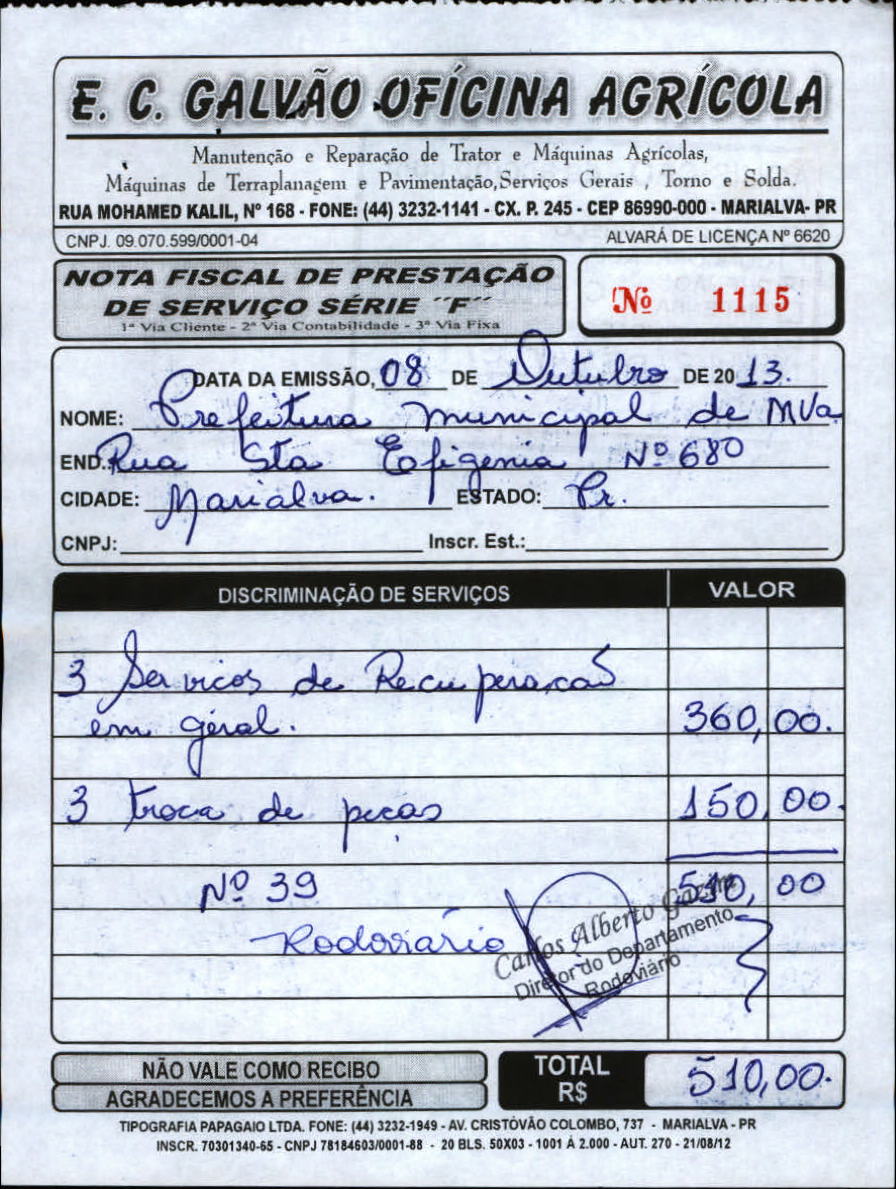 E. C. GALVÃO OFÍCINA AGRÍCOLA
Manutenção e Reparação de Trator e Máquinas Agrícolas,
Máquinas de Terraplanagem e Pavimentação,Serviços Gerais , Torno e Solda.
RUA MOHAMED KALIL, Nº 168 - FONE: (44) 3232-1141 - CX. P. 245 - CEP 86990-000 - MARIALVA- PR
CNPJ. 09.070.599/0001-04 ALVARÁ DE LICENÇA Nº 6620
NOTA FISCAL DE PRESTAÇÃO
DE SERVIÇO SÉRIE "F"
1ª Via Cliente - 2ª Via Contabilidade - 3ª Via Fixa
Nº 1115
DATA DA EMISSÃO, 08 DE Outubro DE 2013.
NOME: Prefeitura municipal de MVa
END. Rua Sta Eofigenia Nº 680
CIDADE: Marialva. ESTADO: Pr.
CNPJ: Inscr. Est.:
DISCRIMINAÇÃO DE SERVIÇOS VALOR
3 Servicos de Recuperacaõ
em geral. 360,00.
3 troca de pecas 150,00.
Nº 39 510,00
Rodoviário
Carlos Alberto
Diretor do Departamento
Rodoviário
NÃO VALE COMO RECIBO
AGRADECEMOS A PREFERÊNCIA
TOTAL
R$ 510,00.
TIPOGRAFIA PAPAGAIO LTDA. FONE: (44) 3232-1949 - AV. CRISTÓVÃO COLOMBO, 737 - MARIALVA - PR
INSCR. 70301340-65 - CNPJ 78184603/0001-88 - 20 BLS. 50X03 - 1001 À 2.000 - AUT. 270 - 21/08/12